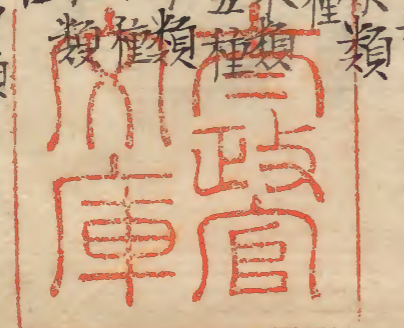 類
種
類
種
類
種
類
太政官
文庫